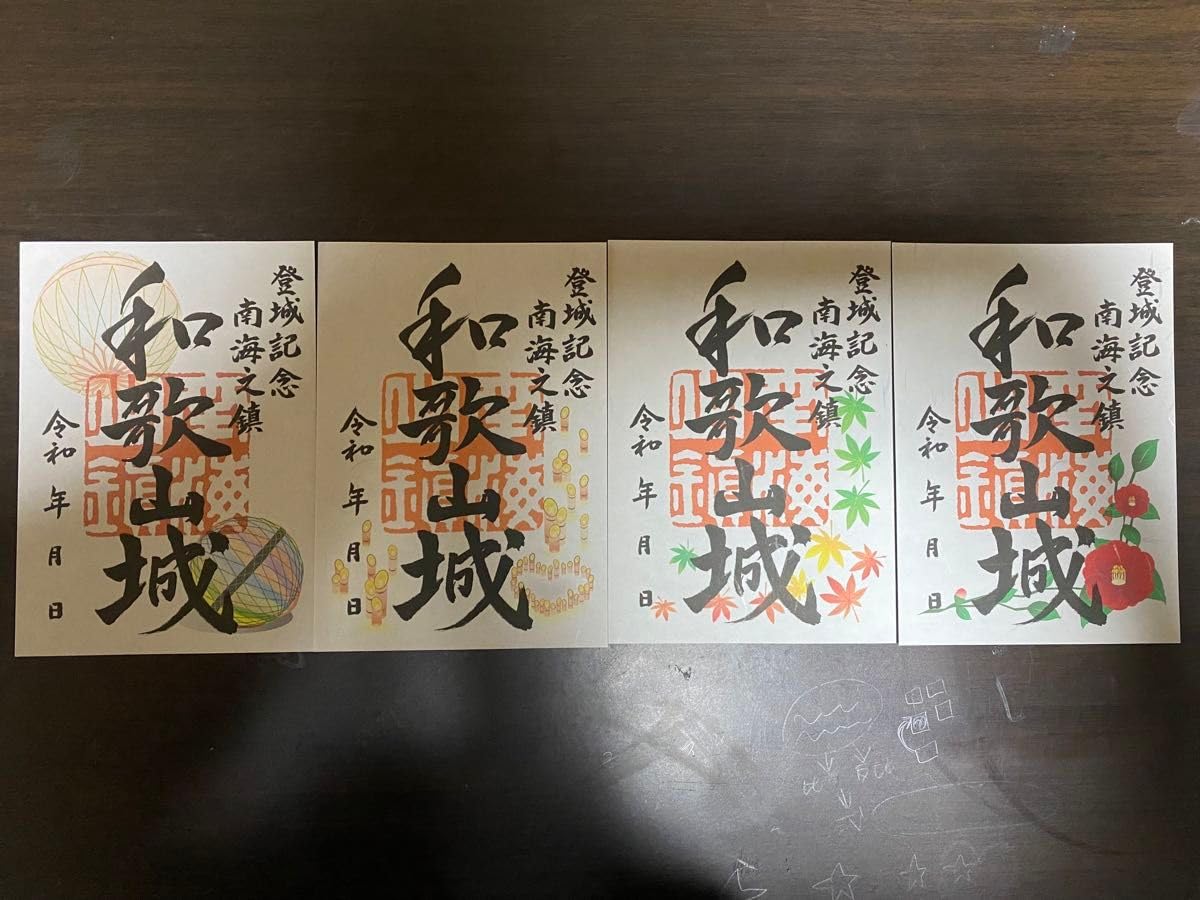 登城記念
南海之鎮
和歌山城
令和 年 月 日
登城記念
南海之鎮
和歌山城
令和 年 月 日
登城記念
南海之鎮
和歌山城
令和 年 月 日
登城記念
南海之鎮
和歌山城
令和 年 月 日